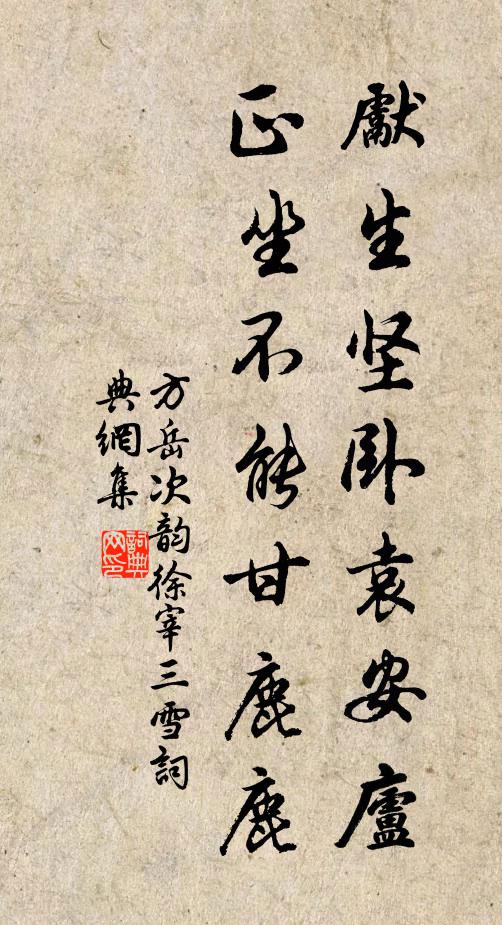 獻生坚卧袁安廬
正坐不能甘鹿鹿
方岳次韵徐宰三雪詞
典網集
詞典
网印